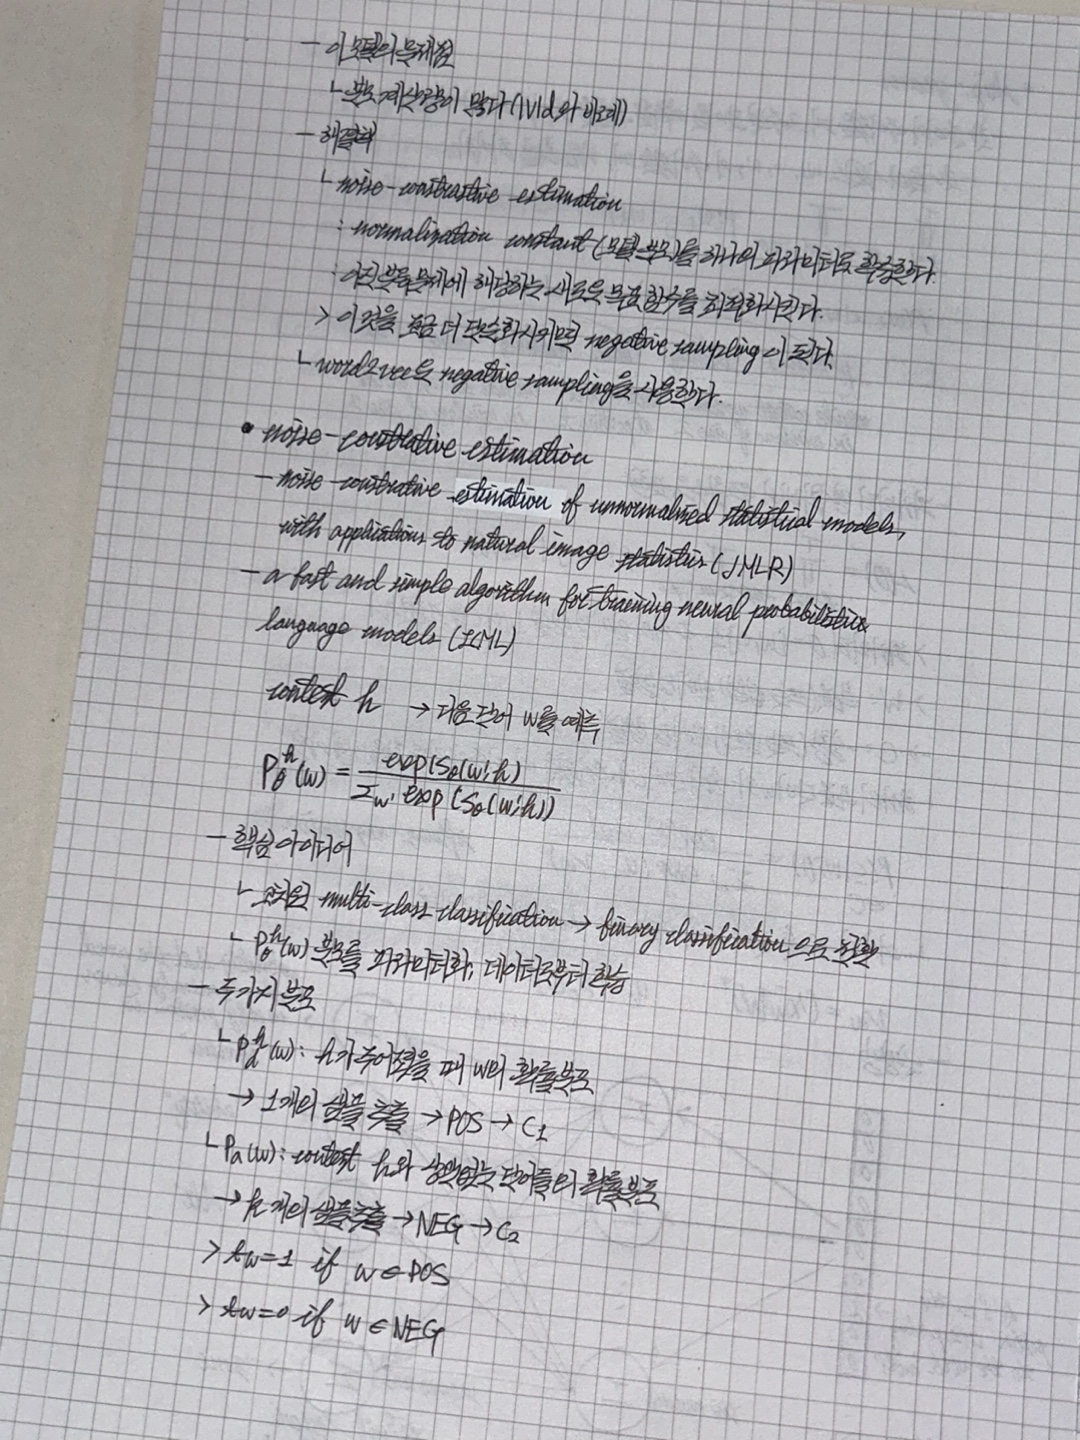 - 이 모델의 문제점
└ 분모 계산량이 많다 (|V|d와 비례)
- 해결책
└ noise-contrastive estimation
: normalization constant (모델 분모)를 하나의 파라미터로 확장한다.
: 이진 분류 문제에 해당하는 새로운 목표함수를 최적화시킨다.
> 이것을 조금 더 단순화시키면 negative sampling이 된다.
└ word2vec은 negative sampling을 사용한다.
• noise-constrative estimation
- noise-constrative estimation of unnormalized statistical models,
with applications to natural image statistics (JMLR)
- a fast and simple algorithm for training neural probabilistics
language models (ICML)
context h → 다음 단어 w를 예측
P_θ^h(w) = exp(S_θ(w;h) / Σ_w' exp(S_θ(w';h))
- 핵심 아이디어
└ 고차원 multi-class classification → binary classification으로 전환
└ P_θ^h(w) 분모를 파라미터화, 데이터로부터 학습
- 두가지 분포
└ P_d^h(w): h가 주어졌을 때 w의 확률분포
→ 1개의 샘플 추출 → POS → C1
└ Pa(w): context h와 상관없는 단어들의 확률분포
→ k개의 샘플 추출 → NEG → C2
> tw=1 if w ∈ POS
> tw=0 if w ∈ NEG